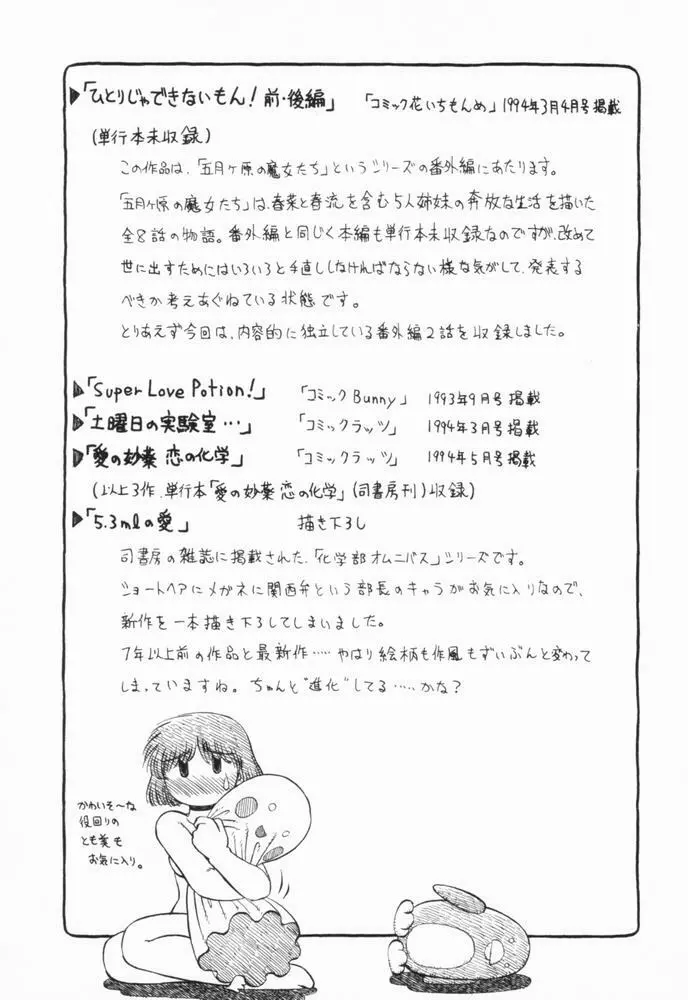 ▶「ひとりじゃできないもん！前・後編」 「コミック花いちもんめ」1994年3月4月号掲載
(単行本未収録)
この作品は、「五月ヶ原の魔女たち」というシリーズの番外編にあたります。
「五月ヶ原の魔女たち」は、春菜と春流を含む5人姉妹の奔放な生活を描いた
全8話の物語。番外編と同じく本編も単行本未収録なのですが、改めて
世に出すためにはいろいろと手直ししなければならない様な気がして、発表する
べきか考えあぐねている状態です。
とりあえず今回は、内容的に独立している番外編2話を収録しました。
▶「Super Love Potion!」 「コミックBunny」 1993年9月号掲載
▶「土曜日の実験室…」 「コミックラッツ」 1994年3月号掲載
▶「愛の妙薬 恋の化学」 「コミックラッツ」 1994年5月号掲載
(以上3作、単行本「愛の妙薬 恋の化学」(司書房刊)収録)
▶「5.3mlの愛」 描き下ろし
司書房の雑誌に掲載された、「化学部オムニバス」シリーズです。
ショートヘアにメガネに関西弁という部長のキャラがお気に入りなので、
新作を一本描き下ろしてしまいました。
7年以上前の作品と最新作……やはり絵柄も作風もずいぶんと変わって
しまっていますね。ちゃんと"進化"してる……かな？
かわいそ〜な
役回りの
とも美も
お気に入り。